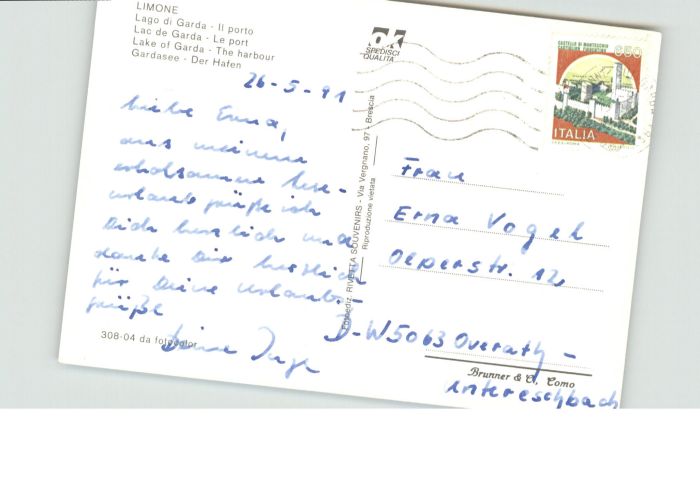 LIMONE
Lago di Garda - Il porto
Lac de Garda - Le port
Lake of Garda - The harbour
Gardasee - Der Hafen
26-5-91
Liebe Erna,
aus meinem
erholsamen
urlaub grüße ich
Dich herzlich und
danke Dir herzlich
für Deine Urlaubs-
grüße
Deine Inge
308-04 da fotocolor
OK
SPEDISCI
QUALITÀ
Ediz. RIVETTA SOUVENIRS - Via Vergnano, 97 - Brescia
Riproduzione vietata
650
ITALIA
Frau
Erna Vogel
Oeperstr. 12
D-W5063 Overath-
Untereschbach
Brunner & C. Como